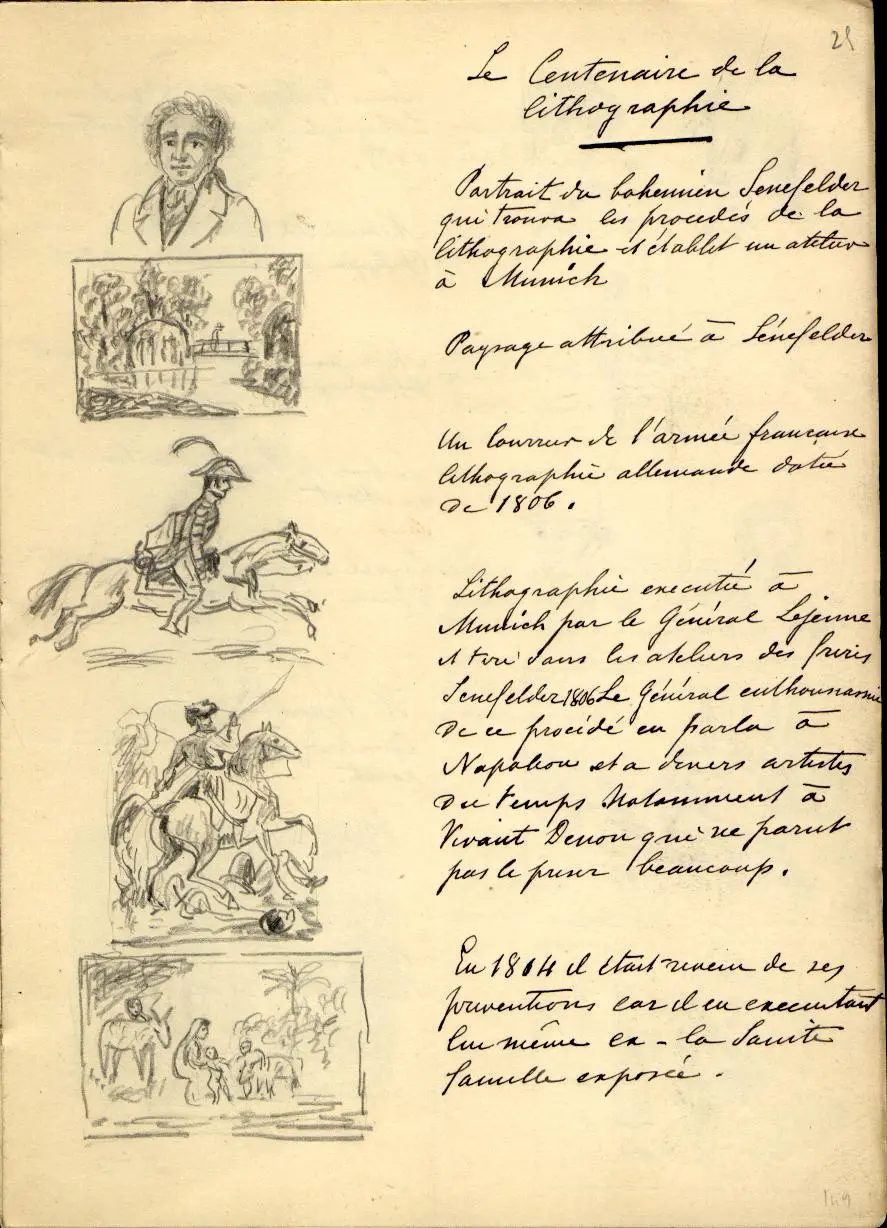 25
Le Centenaire de la
lithographie
Portrait du bohemien Senefelder
qui trouva les procedés de la
lithographie et établet un atelier
à Munich
Paysage attribué à Sénefelder
Un Courreur de l'armée française
lithographie allemande datée
de 1806.
Lithographie executée à
Munich par le Général Lejeune
et tiré dans les ateliers des freres
Senefelder 1806 Le Général enthousiasmé
de ce procédé en parla à
Napoleon et a divers artistes
du temps Notamment à
Vivant Denon qui ne parut
pas le priser beaucoup.
En 1814 il était revenu de ses
preventions car il en executant
lui même ex - la Sainte
famille exposée.
149